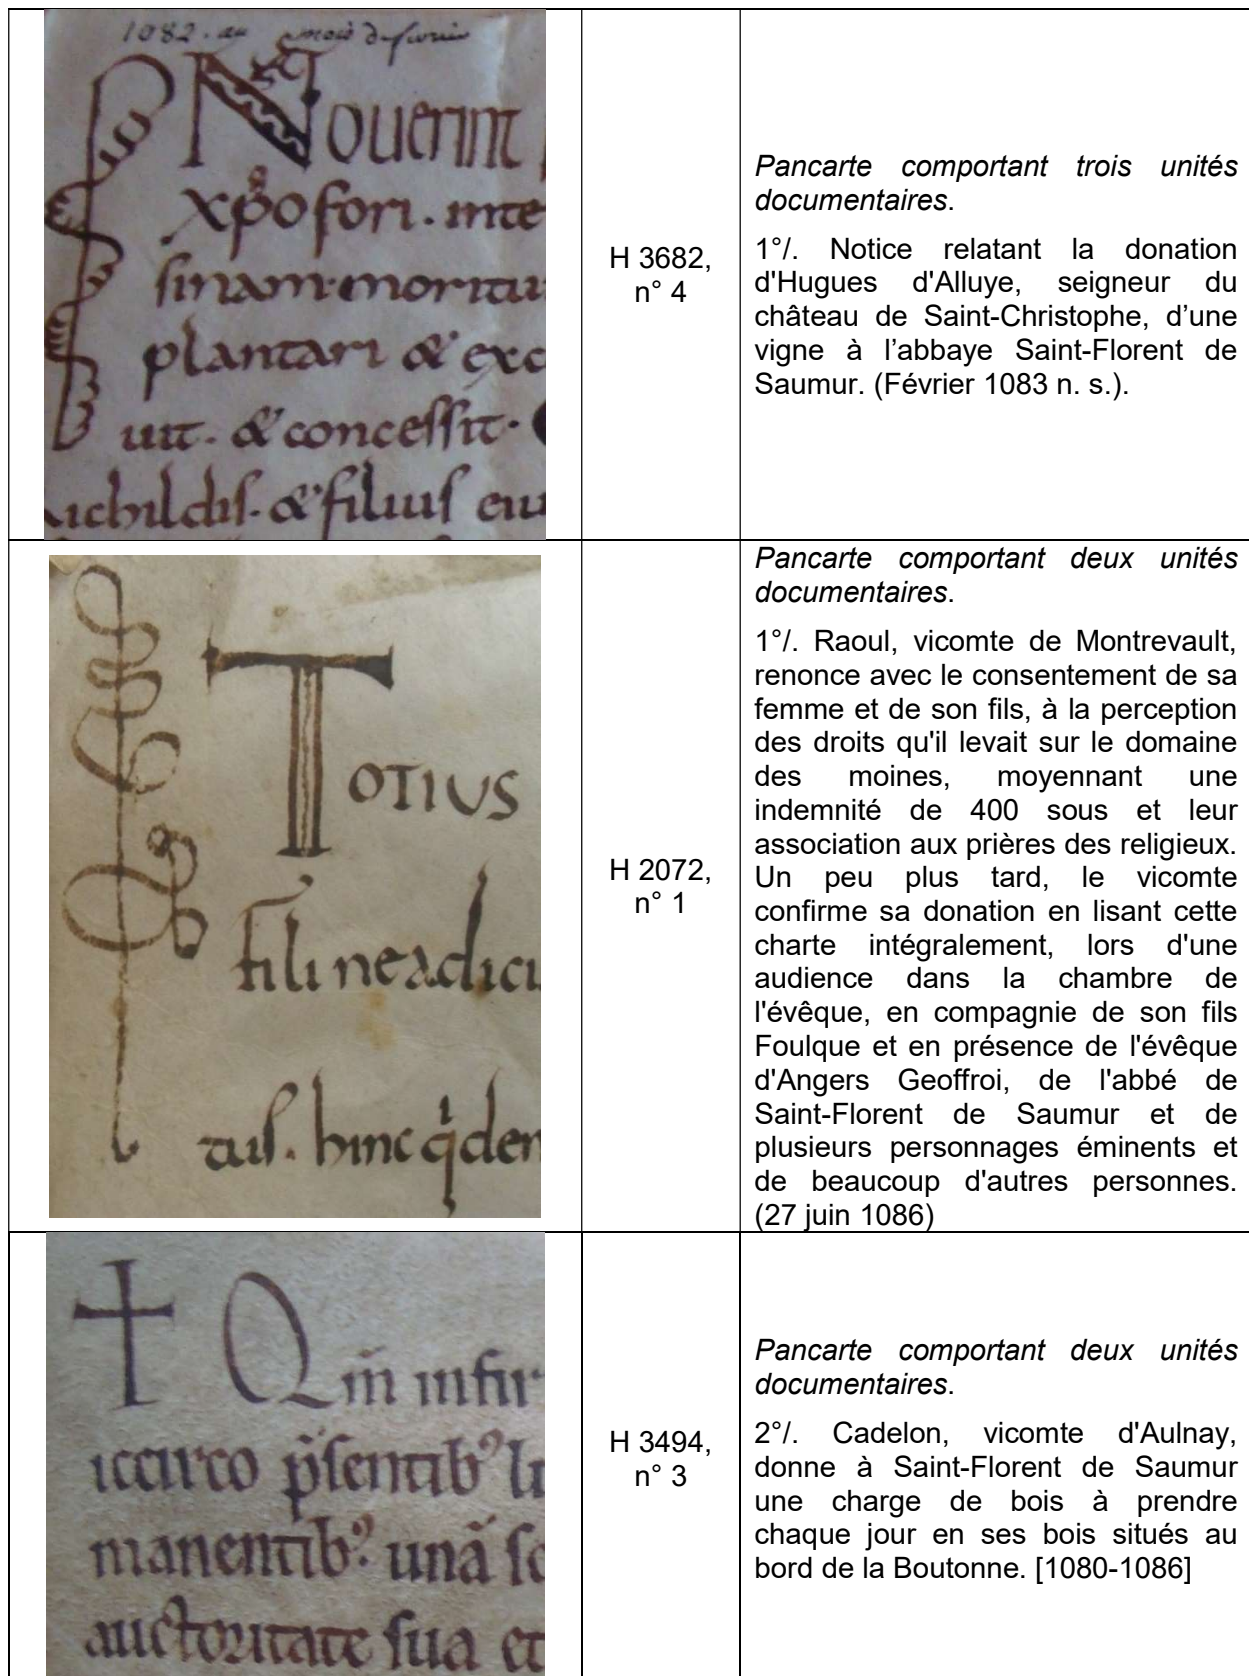 1082. au mois de fevrier
Nouerint
xp̄ofori. inte
sinam. moritu
plantari & exc
uit. & concessit.
Richildis. & filius eiu
H 3682,
n° 4
Pancarte comportant trois unités
documentaires.
1°/. Notice relatant la donation
d'Hugues d'Alluye, seigneur du
château de Saint-Christophe, d’une
vigne à l’abbaye Saint-Florent de
Saumur. (Février 1083 n. s.).
TOTIUS
fili ne adici
tus. hinc q̇den
H 2072,
n° 1
Pancarte comportant deux unités
documentaires.
1°/. Raoul, vicomte de Montrevault,
renonce avec le consentement de sa
femme et de son fils, à la perception
des droits qu'il levait sur le domaine
des moines, moyennant une
indemnité de 400 sous et leur
association aux prières des religieux.
Un peu plus tard, le vicomte
confirme sa donation en lisant cette
charte intégralement, lors d'une
audience dans la chambre de
l'évêque, en compagnie de son fils
Foulque et en présence de l'évêque
d'Angers Geoffroi, de l'abbé de
Saint-Florent de Saumur et de
plusieurs personnages éminents et
de beaucoup d'autres personnes.
(27 juin 1086)
Qm̄ infir
iccirco p̄sentibꝰ lu
manentibꝰ. unā so
auctoritate sua et
H 3494,
n° 3
Pancarte comportant deux unités
documentaires.
2°/. Cadelon, vicomte d'Aulnay,
donne à Saint-Florent de Saumur
une charge de bois à prendre
chaque jour en ses bois situés au
bord de la Boutonne. [1080-1086]